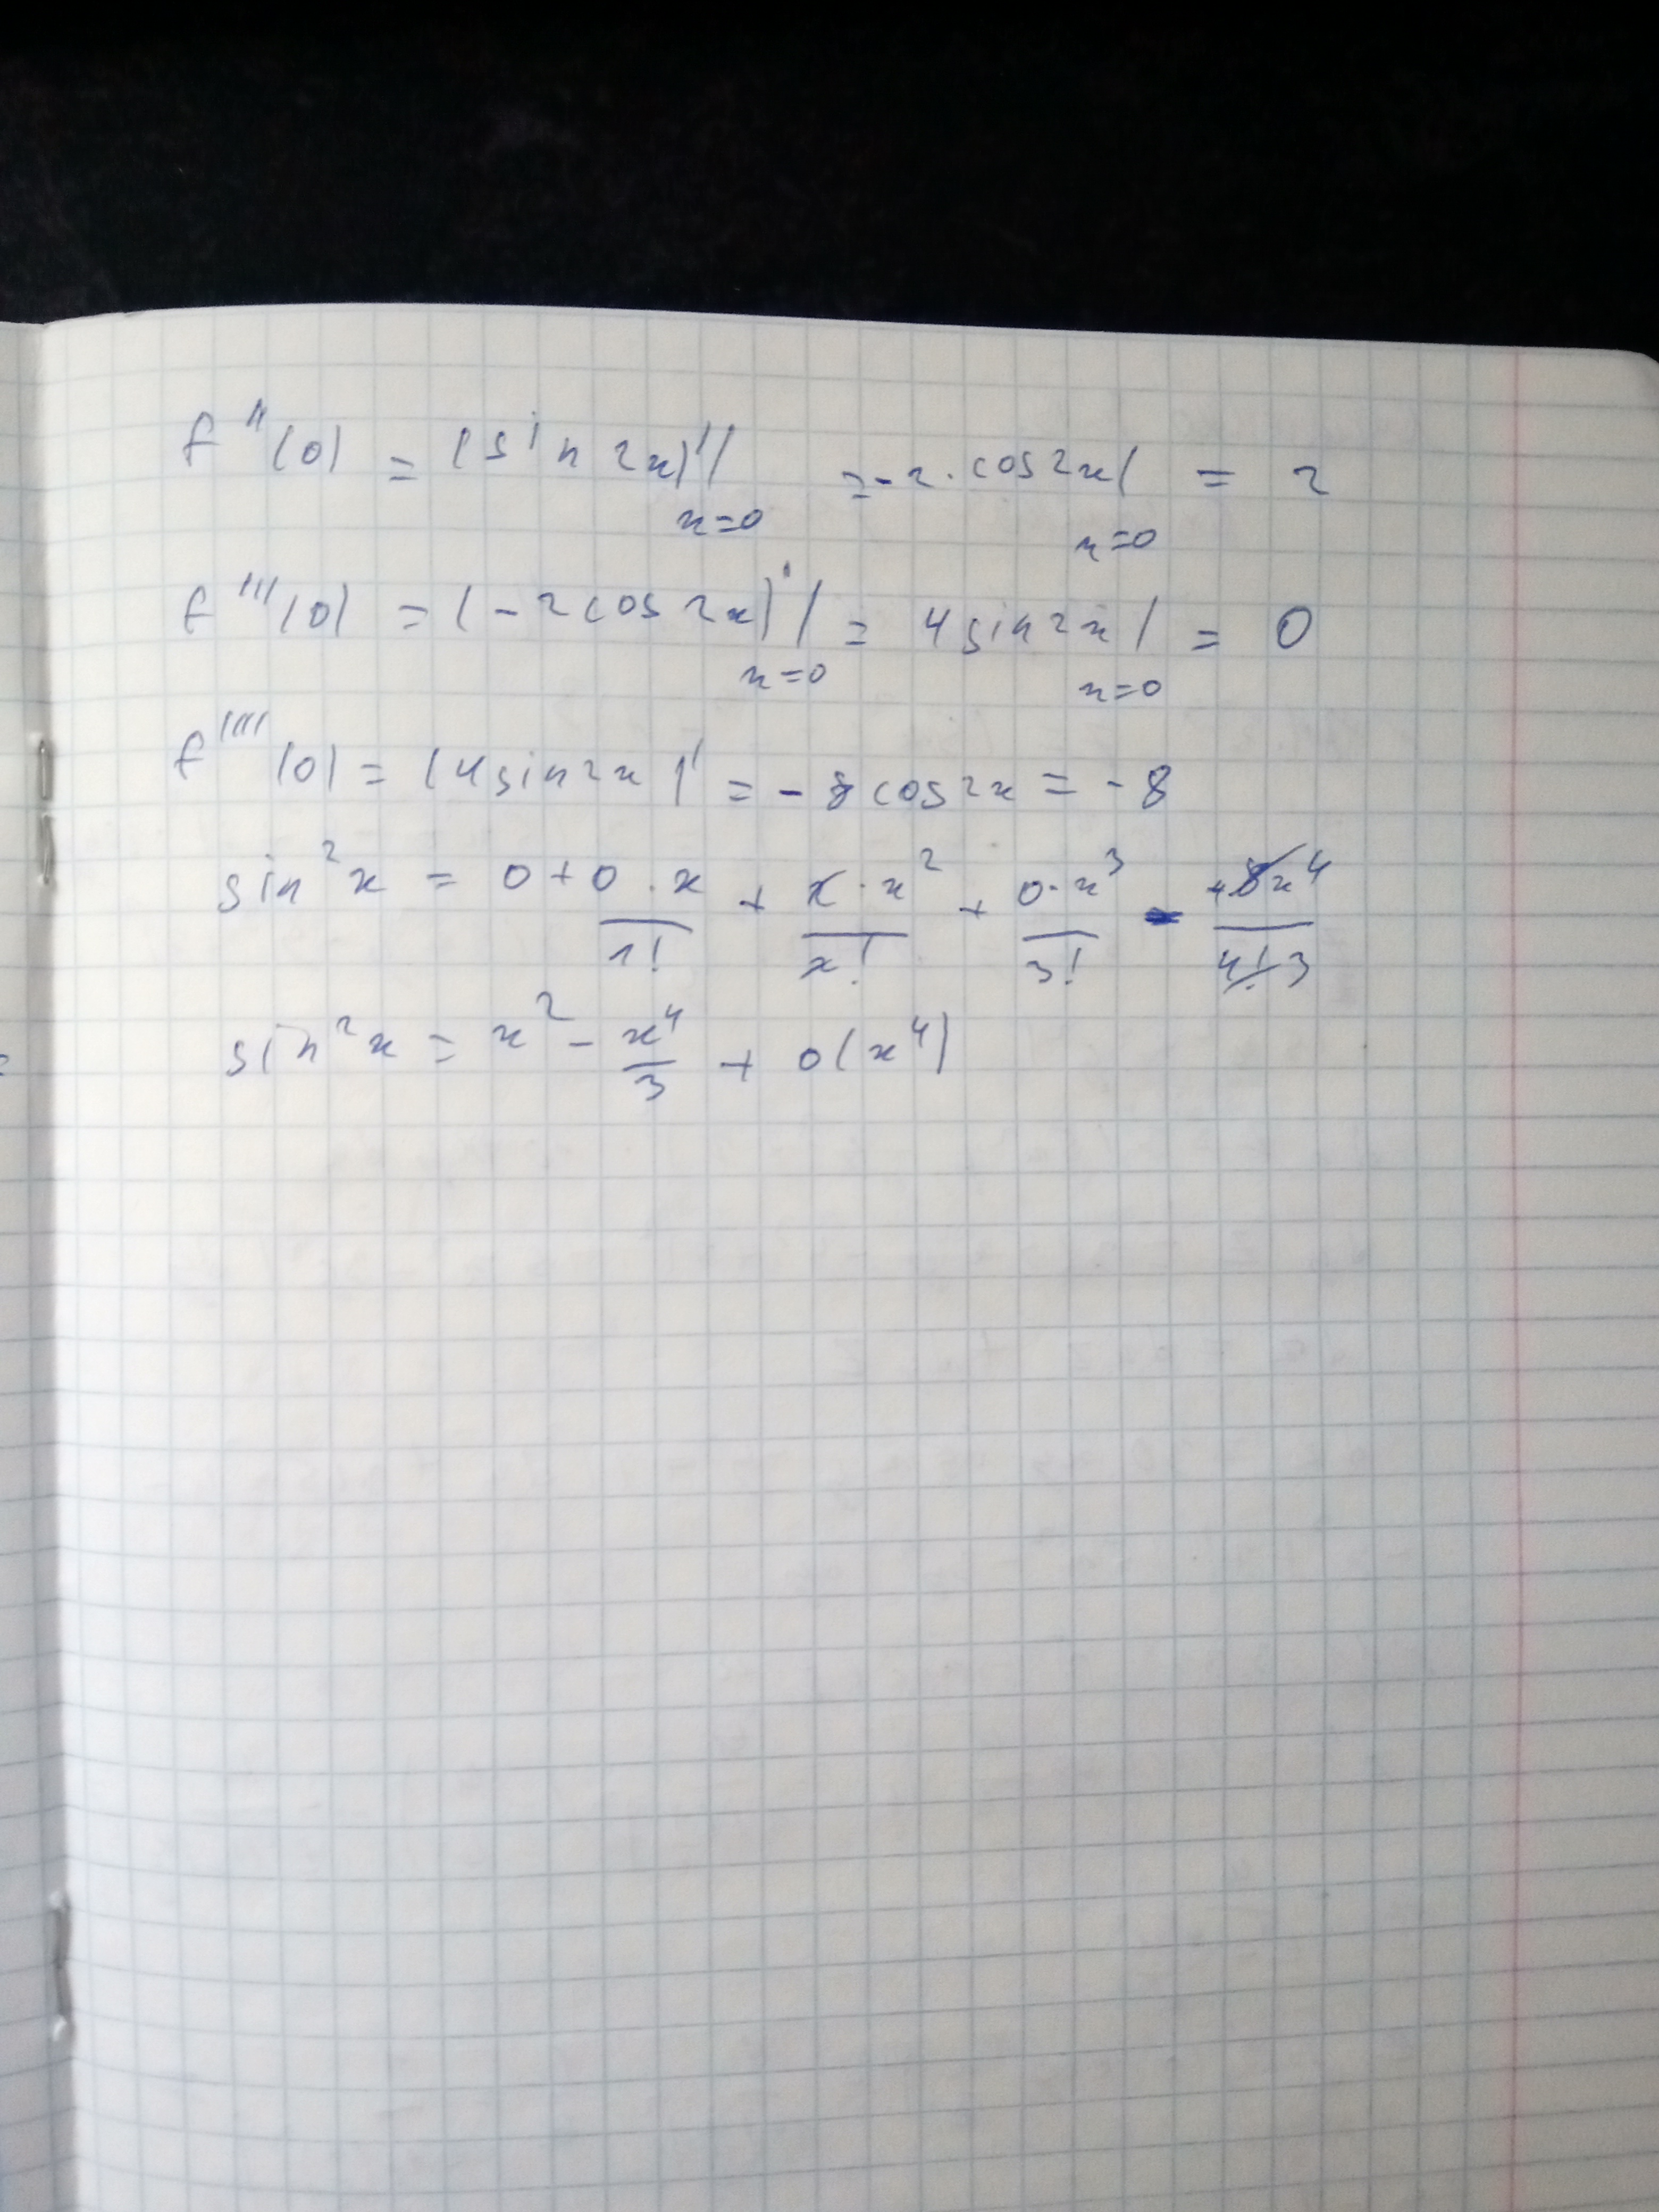 f''(0) = (sin 2x)'| x=0 = -2·cos2x| x=0 = 2
f'''(0) = (-2cos 2x)'| x=0 = 4sin2x| x=0 = 0
f''''(0) = (4sin2x)' = -8cos2x = -8
sin²x = 0 + 0·x/1! + 2·x²/2! + 0·x³/3! - 8x⁴/4! 3
sin²x = x² - x⁴/3 + o(x⁴)